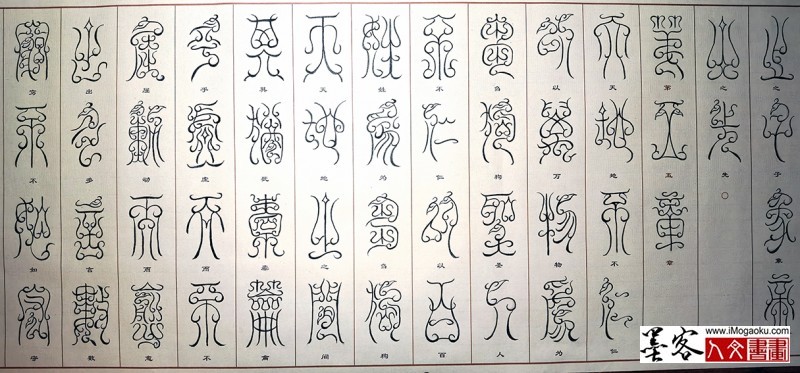 之子象帝
之先○
第五章
天地不仁
以万物为
刍狗圣人
不仁以百
姓为刍狗
天地之间
其犹橐龠
乎虚而不
屈动而愈
出多言数
穷不如守
墨客
www.iMogaoku.com
人文書畫